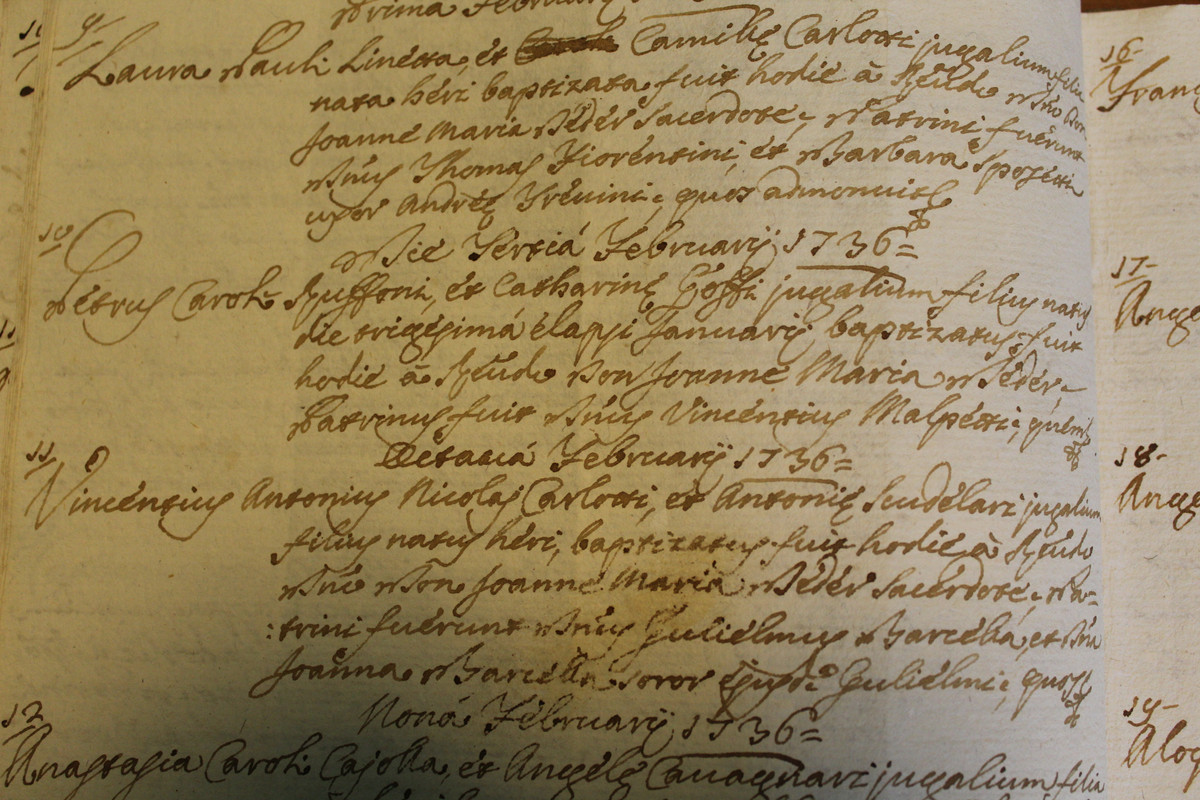 Prima Februarij
9
Laura Pauli Linetta, et Camillę Carlotti jugalium filia
nata heri baptizata fuit hodie à Rẽudo Dño Don
Joanne Maria Peder Sacerdote; Patrini fuerunt
Dñus Thomas Fiorentini, et Barbara Sposetti
uxor Andreę Trevini; quos admonuit
10
Die Tertiá Februarij 1736=
Petrus Caroli Ruffoni, et Catharinę Goffi jugalium filius natus
die trigesimá elapsi Januarij, baptizatus fuit
hodie à Rẽudo Don Joanne Maria Peder;
Patrinus fuit Dñus Vincentius Malpetti; quem
11
Octauá Februarij 1736=
Vincentius Antonius Nicolaj Carlotti, et Antonię Scudelari jugalium
filius natus heri, baptizatus fuit hodie à Rẽudo
Dño Don Joanne Maria Peder Sacerdote; Pa=
:trini fuerunt Dñus Gulielmus Barcella, et Dña
Joanna Barcella soror ejusdẽ Gulielmi; quos
12
Noná Februarij 1736=
Anastasia Caroli Cajolla, et Angelę Cauagnari jugalium filia
16
Franc
17
Ange
18
Ang
19
Alo